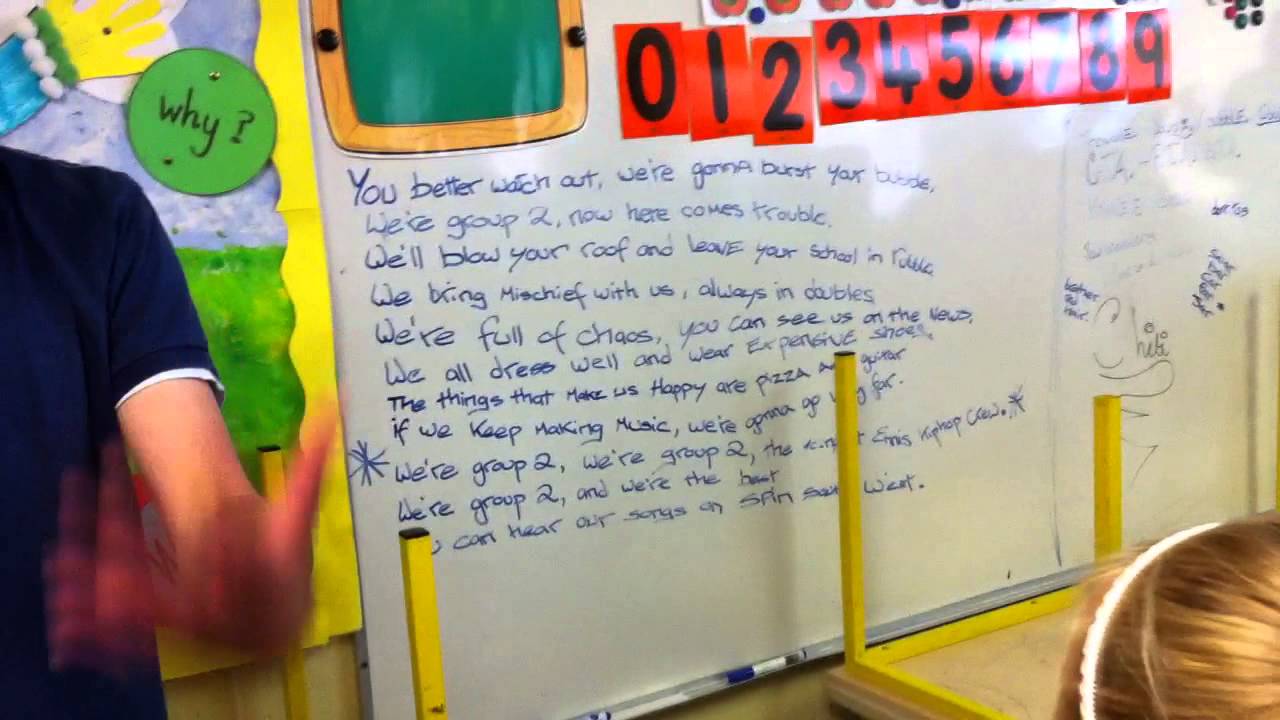 why?
0 1 2 3 4 5 6 7 8 9
You better watch out, we're gonna burst your bubble,
We're group 2, now here comes trouble.
We'll blow your roof and leave your school in rubble
We bring Mischief with us, always in doubles,
We're full of chaos, you can see us on the News,
We all dress well and wear Expensive shoes,
The things that Make us Happy are pizza and guitar
if we Keep Making Music, we're gonna go far.
We're group 2, we're group 2, the Ennis Hiphop Crew.
We're group 2, and we're the best
can hear our songs on Spin South West.
Chibi